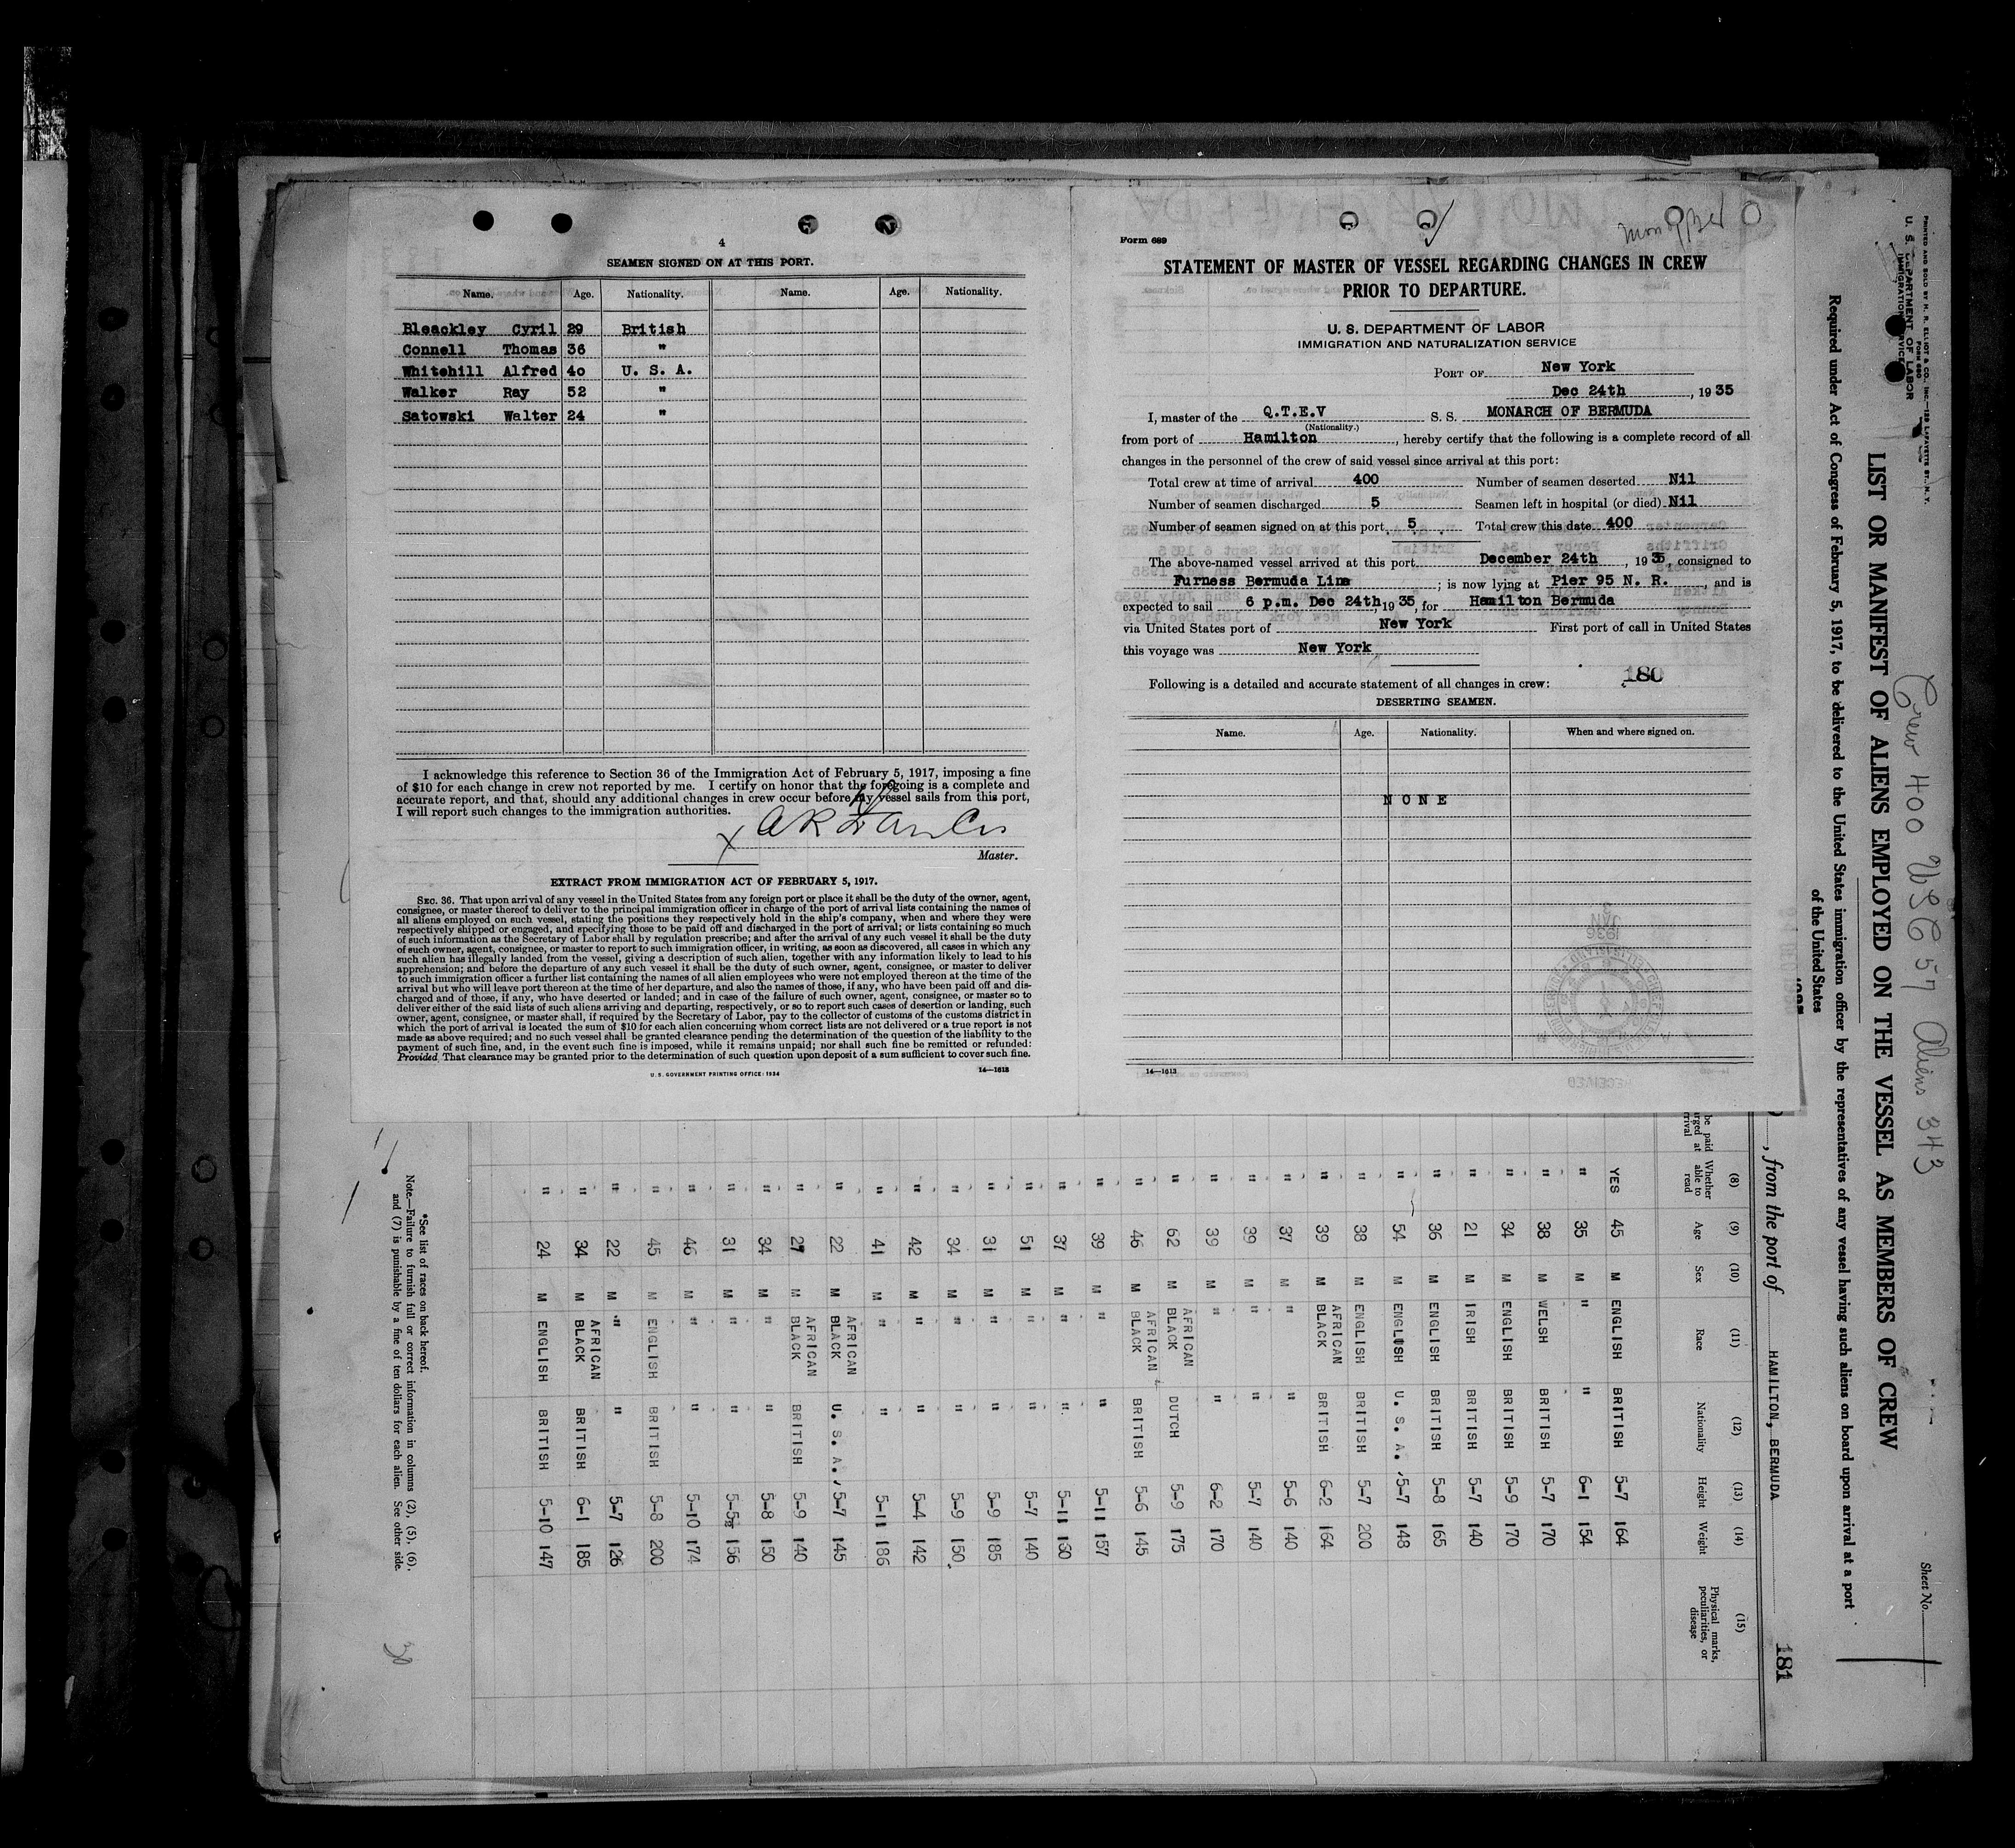 4
SEAMEN SIGNED ON AT THIS PORT.
Name. Age. Nationality. Name. Age. Nationality.
Bleackley Cyril 29 British
Connell Thomas 36 "
Whitehill Alfred 40 U. S. A.
Walker Ray 52 "
Satowski Walter 24 "
I acknowledge this reference to Section 36 of the Immigration Act of February 5, 1917, imposing a fine
of $10 for each change in crew not reported by me. I certify on honor that the foregoing is a complete and
accurate report, and that, should any additional changes in crew occur before my vessel sails from this port,
I will report such changes to the immigration authorities.
X
Master.
EXTRACT FROM IMMIGRATION ACT OF FEBRUARY 5, 1917.
SEC. 36. That upon arrival of any vessel in the United States from any foreign port or place it shall be the duty of the owner, agent,
consignee, or master thereof to deliver to the principal immigration officer in charge of the port of arrival lists containing the names of
all aliens employed on such vessel, stating the positions they respectively hold in the ship's company, when and where they were
respectively shipped or engaged, and specifying those to be paid off and discharged in the port of arrival; or lists containing so much
of such information as the Secretary of Labor shall by regulation prescribe; and after the arrival of any such vessel it shall be the duty
of such owner, agent, consignee, or master to report to such immigration officer, in writing, as soon as discovered, all cases in which any
such alien has illegally landed from the vessel, giving a description of such alien, together with any information likely to lead to his
apprehension; and before the departure of any such vessel it shall be the duty of such owner, agent, consignee, or master to deliver
to such immigration officer a further list containing the names of all alien employees who were not employed thereon at the time of the
arrival but who will leave port thereon at the time of her departure, and also the names of those, if any, who have been paid off and dis-
charged and of those, if any, who have deserted or landed; and in case of the failure of such owner, agent, consignee, or master so to
deliver either of the said lists of such aliens arriving and departing, respectively, or so to report such cases of desertion or landing, such
owner, agent, consignee, or master shall, if required by the Secretary of Labor, pay to the collector of customs of the customs district in
which the port of arrival is located the sum of $10 for each alien concerning whom correct lists are not delivered or a true report is not
made as above required; and no such vessel shall be granted clearance pending the determination of the question of the liability to the
payment of such fine, and, in the event such fine is imposed, while it remains unpaid; nor shall such fine be remitted or refunded:
Provided, That clearance may be granted prior to the determination of such question upon deposit of a sum sufficient to cover such fine.
U. S. GOVERNMENT PRINTING OFFICE: 1934
14—1613
Mon of Ber
Form 689
STATEMENT OF MASTER OF VESSEL REGARDING CHANGES IN CREW
PRIOR TO DEPARTURE.
U. S. DEPARTMENT OF LABOR
IMMIGRATION AND NATURALIZATION SERVICE
PORT OF New York
Dec 24th, 1935
I, master of the Q.T.E.V S. S. MONARCH OF BERMUDA
(Nationality.)
from port of Hamilton, hereby certify that the following is a complete record of all
changes in the personnel of the crew of said vessel since arrival at this port:
Total crew at time of arrival 400 Number of seamen deserted Nil
Number of seamen discharged 5 Seamen left in hospital (or died) Nil
Number of seamen signed on at this port 5 Total crew this date 400
The above-named vessel arrived at this port December 24th, 1935, consigned to
Furness Bermuda Line; is now lying at Pier 95 N. R., and is
expected to sail 6 p.m. Dec 24th, 1935, for Hamilton Bermuda
via United States port of New York First port of call in United States
this voyage was New York
180
Following is a detailed and accurate statement of all changes in crew:
DESERTING SEAMEN.
Name. Age. Nationality. When and where signed on.
NONE
14—1613
PRINTED AND SOLD BY H. R. ELLIOT & CO., INC.—128 LAFAYETTE ST., N. Y.
Form 680
U. S. DEPARTMENT OF LABOR
IMMIGRATION SERVICE
Crew 400 USC 57 Aliens 343
Sheet No.
LIST OR MANIFEST OF ALIENS EMPLOYED ON THE VESSEL AS MEMBERS OF CREW
Required under Act of Congress of February 5, 1917, to be delivered to the United States immigration officer by the representatives of any vessel having such aliens on board upon arrival at a port
of the United States
, from the port of HAMILTON, BERMUDA
181
(8) (9) (10) (11) (12) (13) (14) (15)
Whether able to read Age Sex Race Nationality Height Weight Physical marks, peculiarities, or disease
YES 45 M ENGLISH BRITISH 5-7 164
" 35 M " " 6-1 154
" 38 M WELSH BRITISH 5-7 170
" 34 M ENGLISH BRITISH 5-9 170
" 21 M IRISH BRITISH 5-7 140
" 36 M ENGLISH BRITISH 5-8 165
" 54 M ENGLISH U. S. A. 5-7 148
" 38 M ENGLISH BRITISH 5-7 200
" 39 M AFRICAN BLACK BRITISH 6-2 164
" 37 M " " 5-6 140
" 39 M " " 5-7 140
" 39 M " " 6-2 170
" 62 M AFRICAN BLACK DUTCH 5-9 175
" 46 M AFRICAN BLACK BRITISH 5-6 145
" 39 M " " 5-11 157
" 37 M " " 5-11
" 51 M " " 5-7 140
" 31 M " " 5-9 185
" 34 M " " 5-9 150
" 42 M " " 5-4 142
" 41 M " " 5-11 186
" 22 M AFRICAN BLACK U. S. A. 5-7 145
" 27 M AFRICAN BLACK BRITISH 5-9 140
" 34 M " " 5-8 150
" 31 M " " 5-5½ 156
" 46 M " " 5-10 174
" 45 M ENGLISH BRITISH 5-8 200
" 22 M " " 5-7 126
" 34 M AFRICAN BLACK BRITISH 6-1 185
" 24 M ENGLISH BRITISH 5-10 147
*See list of races on back hereof.
Note.—Failure to furnish full or correct information in columns (2), (5), (6),
and (7) is punishable by a fine of ten dollars for each alien. See other side.